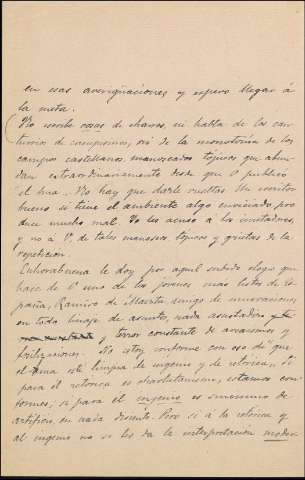 en esas averiguaciones y espero llegar á
la meta.
No escribe cosas de charros, ni habla de los con-
turnios de campesinos, ni de la monotonía de los
campos castellanos manoseados tópicos que abun-
dan extraordinariamente desde que V. publicó
el No hay que darle vueltas. Un escritor
bueno si tiene el ambiente algo enviciado pro
duce mucho mal. Yo les acuso a los imitadores,
y no á V. de tales manoseos, tópicos y grietas de la
repetición.
Enhorabuena le doy por aquel subido elogio que
hace de V. uno de los jóvenes más listos de Es-
paña, Ramiro de Maeztu amigo de innovaciones,
en todo linaje de asuntos, nada asustadizo y
y terror constante de arcaísmos y
No estoy conforme con eso de que
el alma esté limpia de ingenio y de retórica. Si
para él retórica es charlatanismo, estamos con-
formes; si para él ingenio es sinónimo de
artificio, en nada disiento. Pero si á la retórica y
al ingenio no se les da la interpretación moder-